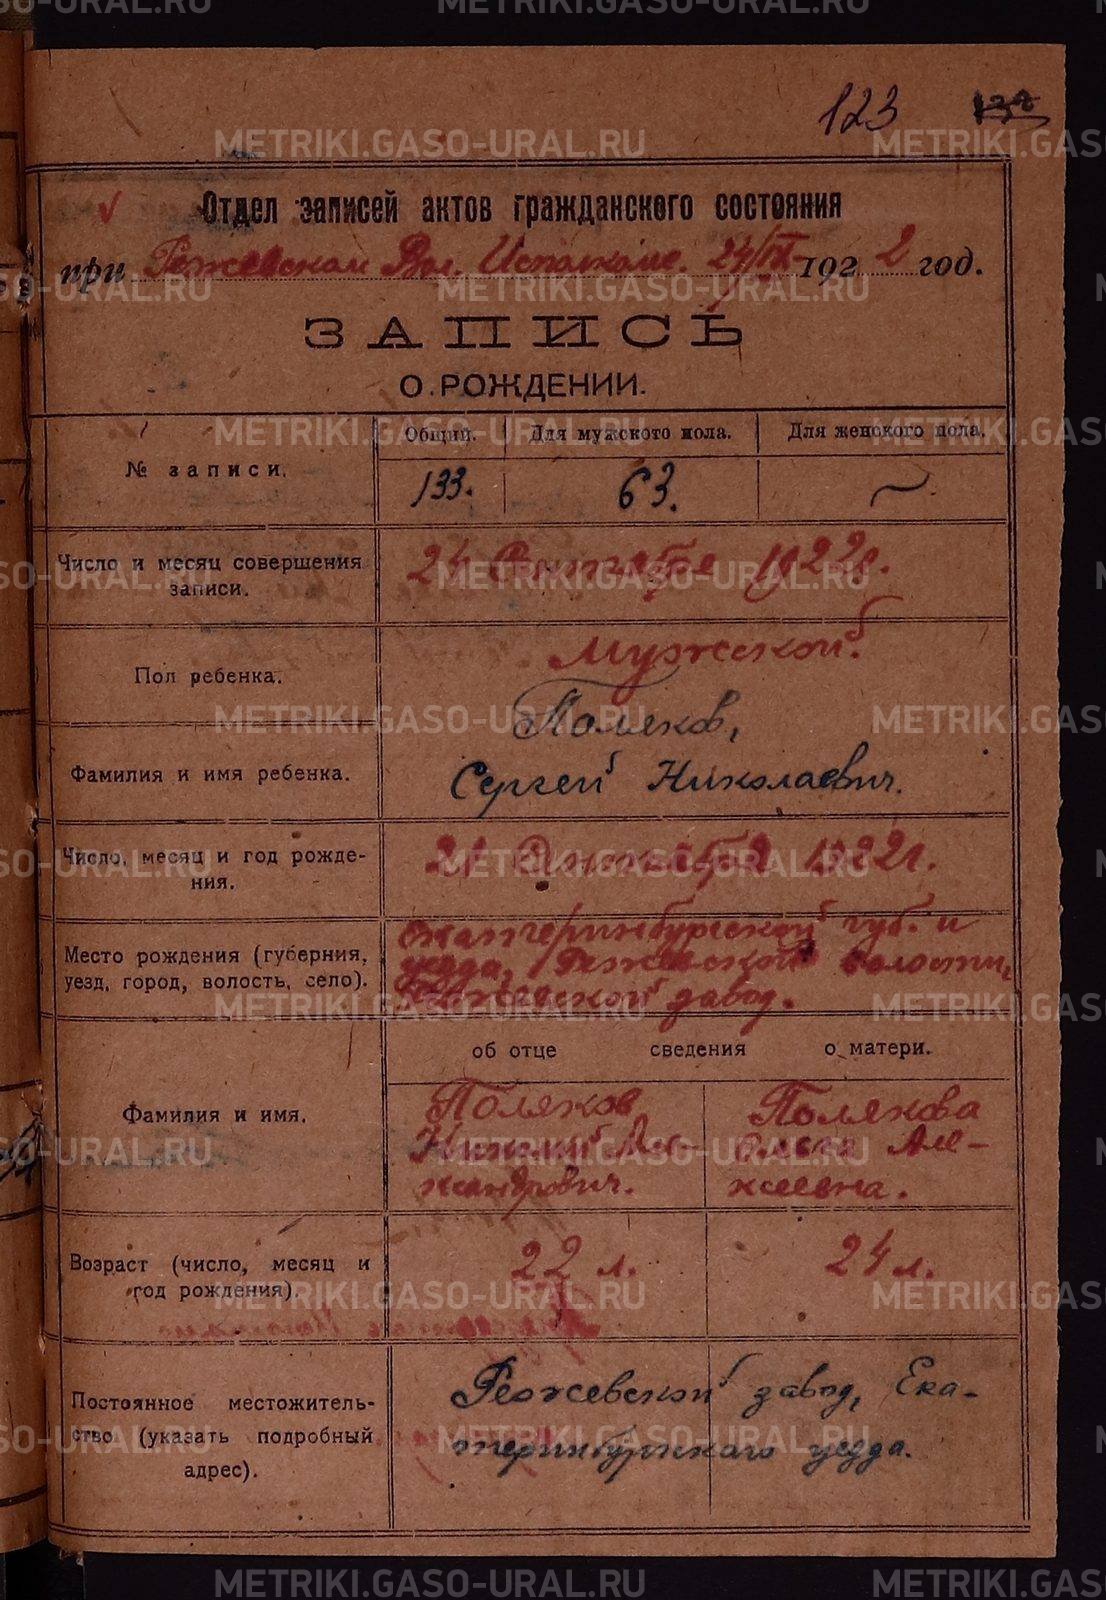 METRIKI.GASO-URAL.RU
123
132
METRIKI.GASO-URAL.RU
Отдел записей актов гражданского состояния
при Режевском Вол. Исполкоме. 24/IX 1922 год.
ЗАПИСЬ
О РОЖДЕНИИ.
№ записи.
Общий. Для мужского пола. Для женского пола.
133. 63. —
Число и месяц совершения
записи.
24 Сентября 1922г.
Пол ребенка.
Мужской.
Фамилия и имя ребенка.
Поляков,
Сергей Николаевич.
Число, месяц и год рожде-
ния.
21 Сентября 1922г.
Место рождения (губерния,
уезд, город, волость, село).
Екатеринбургской губ. и
уезда, Режевской волости,
Режевской завод.
об отце сведения о матери.
Фамилия и имя.
Поляков
Николай Алек-
сандрович.
Полякова
Ольга Але-
ксеевна.
Возраст (число, месяц и
год рождения).
22 л. 24 л.
Постоянное местожитель-
ство (указать подробный
адрес).
Режевской завод, Ека-
теринбургского уезда.
METRIKI.GASO-URAL.RU